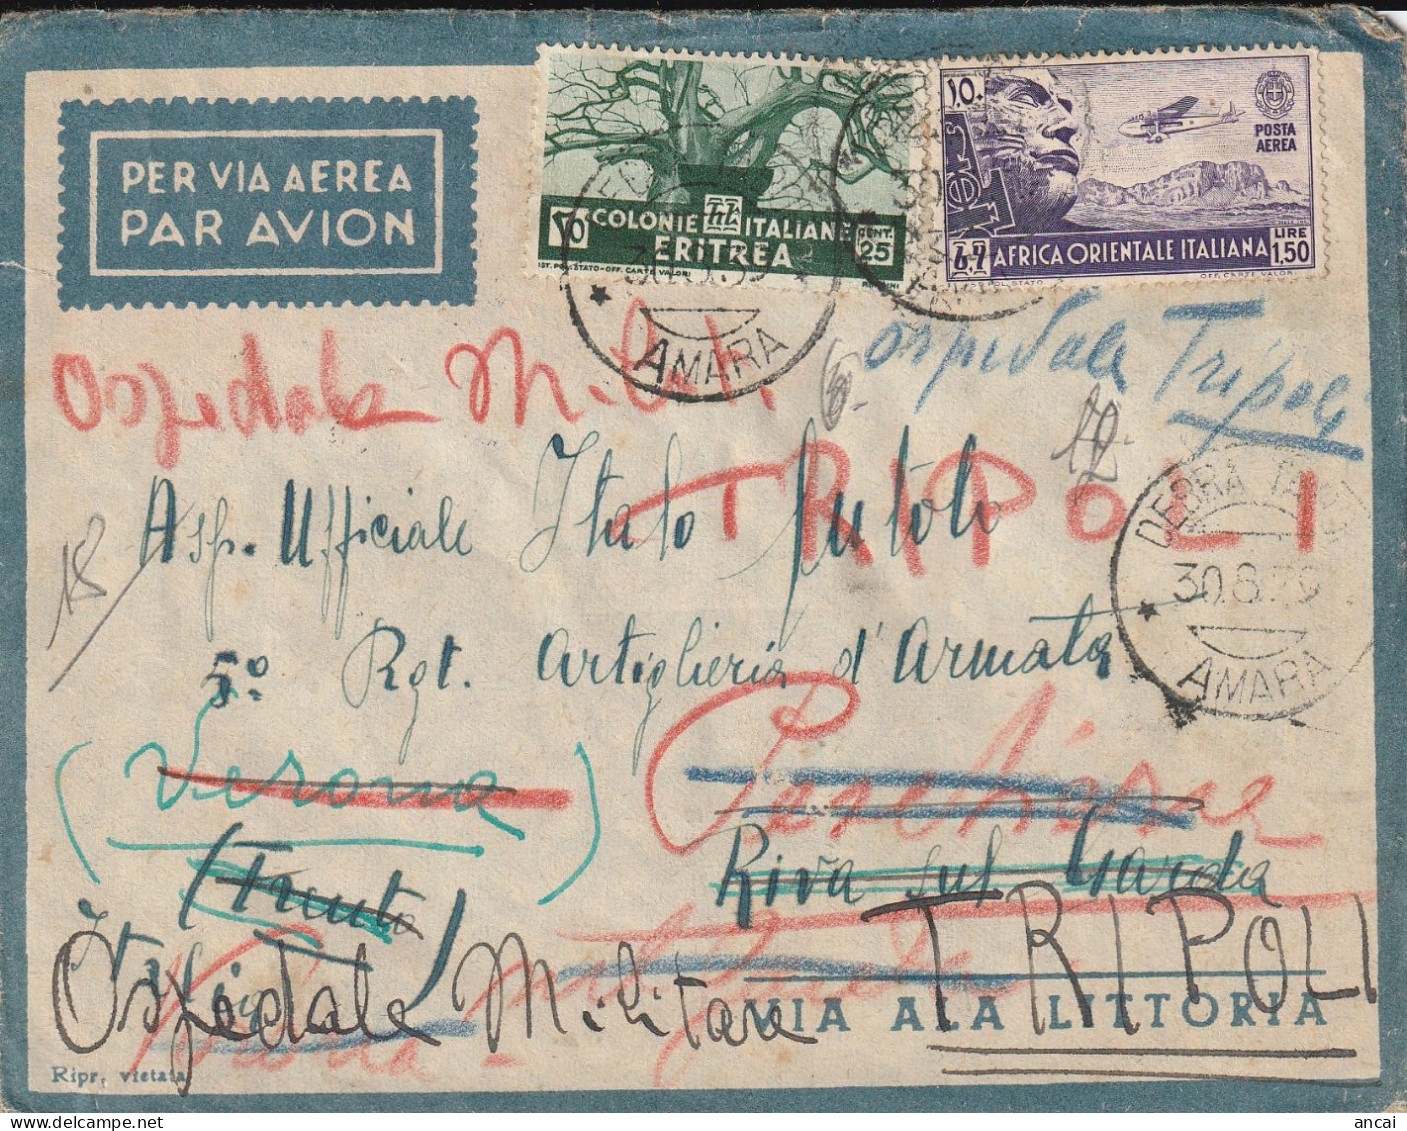 PER VIA AEREA
PAR AVION
COLONIE ITALIANE
ERITREA
CENT. 25
IST. POL. STATO - OFF. CARTE VALORI
POSTA AEREA
AFRICA ORIENTALE ITALIANA
LIRE 1,50
OFF. CARTE VALORI
AMARA
Ospedale Milit.
TRIPOLI
Ospedale
Tripoli
18
Asp. Ufficiale Italo
DEBRA
30.8.39
AMARA
5° Rgt. Artiglieria d'Armata
(Verona)
(Trento)
Riva sul Garda
Italia
Ospedale Militare TRIPOLI
VIA ALA LITTORIA
Ripr. vietata
ancai